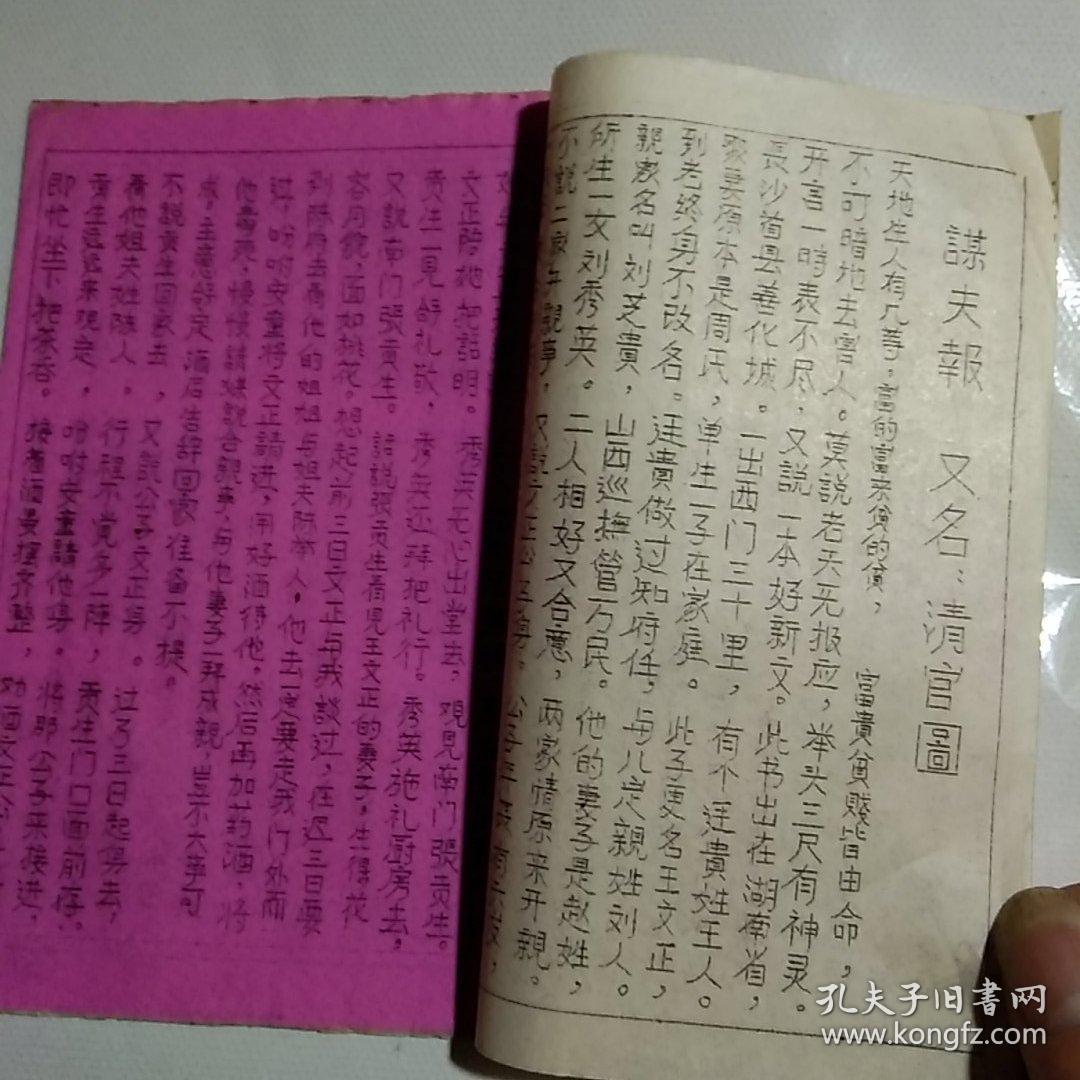 謀夫報 又名：清官圖
天地生人有几等，富的富来貧的貧， 富貴貧賤皆由命，
不可暗地去害人。莫說老天无报应，举头三尺有神灵。
开言一時表不尽，又說一本好新文。此书出在湖南省，
長沙道县善化城。一出西门三十里，有个廷貴姓王人。
娶妻原本是周氏，单生一子在家庭。此子更名王文正，
到老終身不改名。廷貴做过知府任，与儿定親姓刘人。
親家名叫刘芝貴，山西巡撫管万民。他的妻子是赵姓，
所生一女刘秀英。二人相好又合意，两家情原来开親。
不說二家
文正陪她把話明。秀英无心出堂去，観見南门張贡生。
贡生一見舒礼敬，秀英还拜把礼行。秀英施礼厨房去，
又說南门張贡生。話說張贡生看見王文正的妻子，生得花
容月貌，面如桃花。想起前三日文正与我談过，在迟三日要
到陈府去看他的姐姐与姐夫陈举人，他去一定要走我门外而
过，吩咐安童将文正請进，用好酒待他。然后再加药酒，将
他毒死，慢慢請媒說合親事，与他妻子一拜成親，豈不六事可
成。主意好定，酒后告辞回家，准备不提。
不說贡生回家去，又說公子文正身。过了三日起身去，
看他姐夫姓陈人。行程不覚多一陣，贡生门口面前存。
贡生远远来观定，吩咐安童請他身。将那公子来接进，
即忙坐下把茶吞。接着酒宴摆齐整，